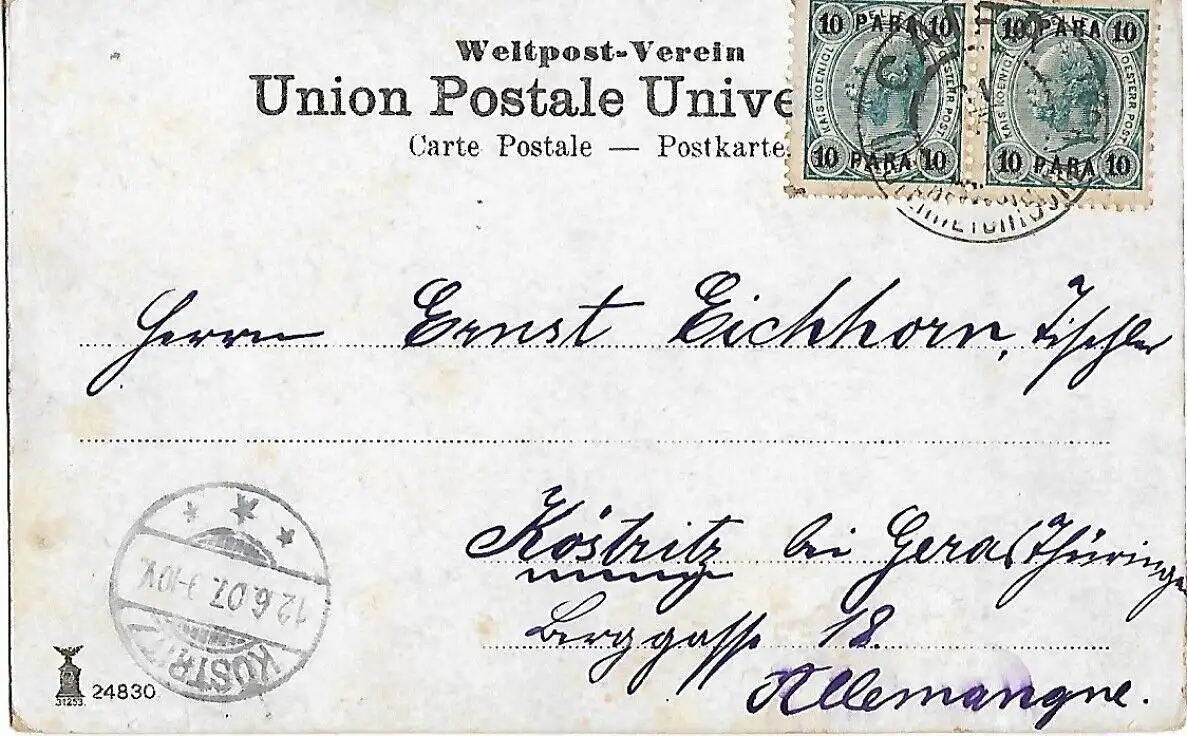 Weltpost-Verein
Union Postale Unive
Carte Postale — Postkarte.
10 PARA 10
KAIS KOENIGL OESTERR. POST
10 PARA 10
10 PARA 10
KAIS KOENIGL OESTERR. POST
10 PARA 10
Herrn Ernst Eichhorn, Tischler
Köstritz bei Gera Thüringe
Berggasse 18
Allemangne.
KÖSTRITZ
12.6.07. 9-10V.
31253.
24830